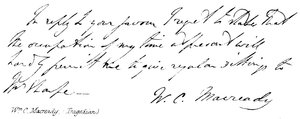 In reply to your favour I regret to state that
the occupation of my time at present will
hardly permit me to give regular sittings to
Mr
W. C. Macready
Wm C. Macready (Tragedian)